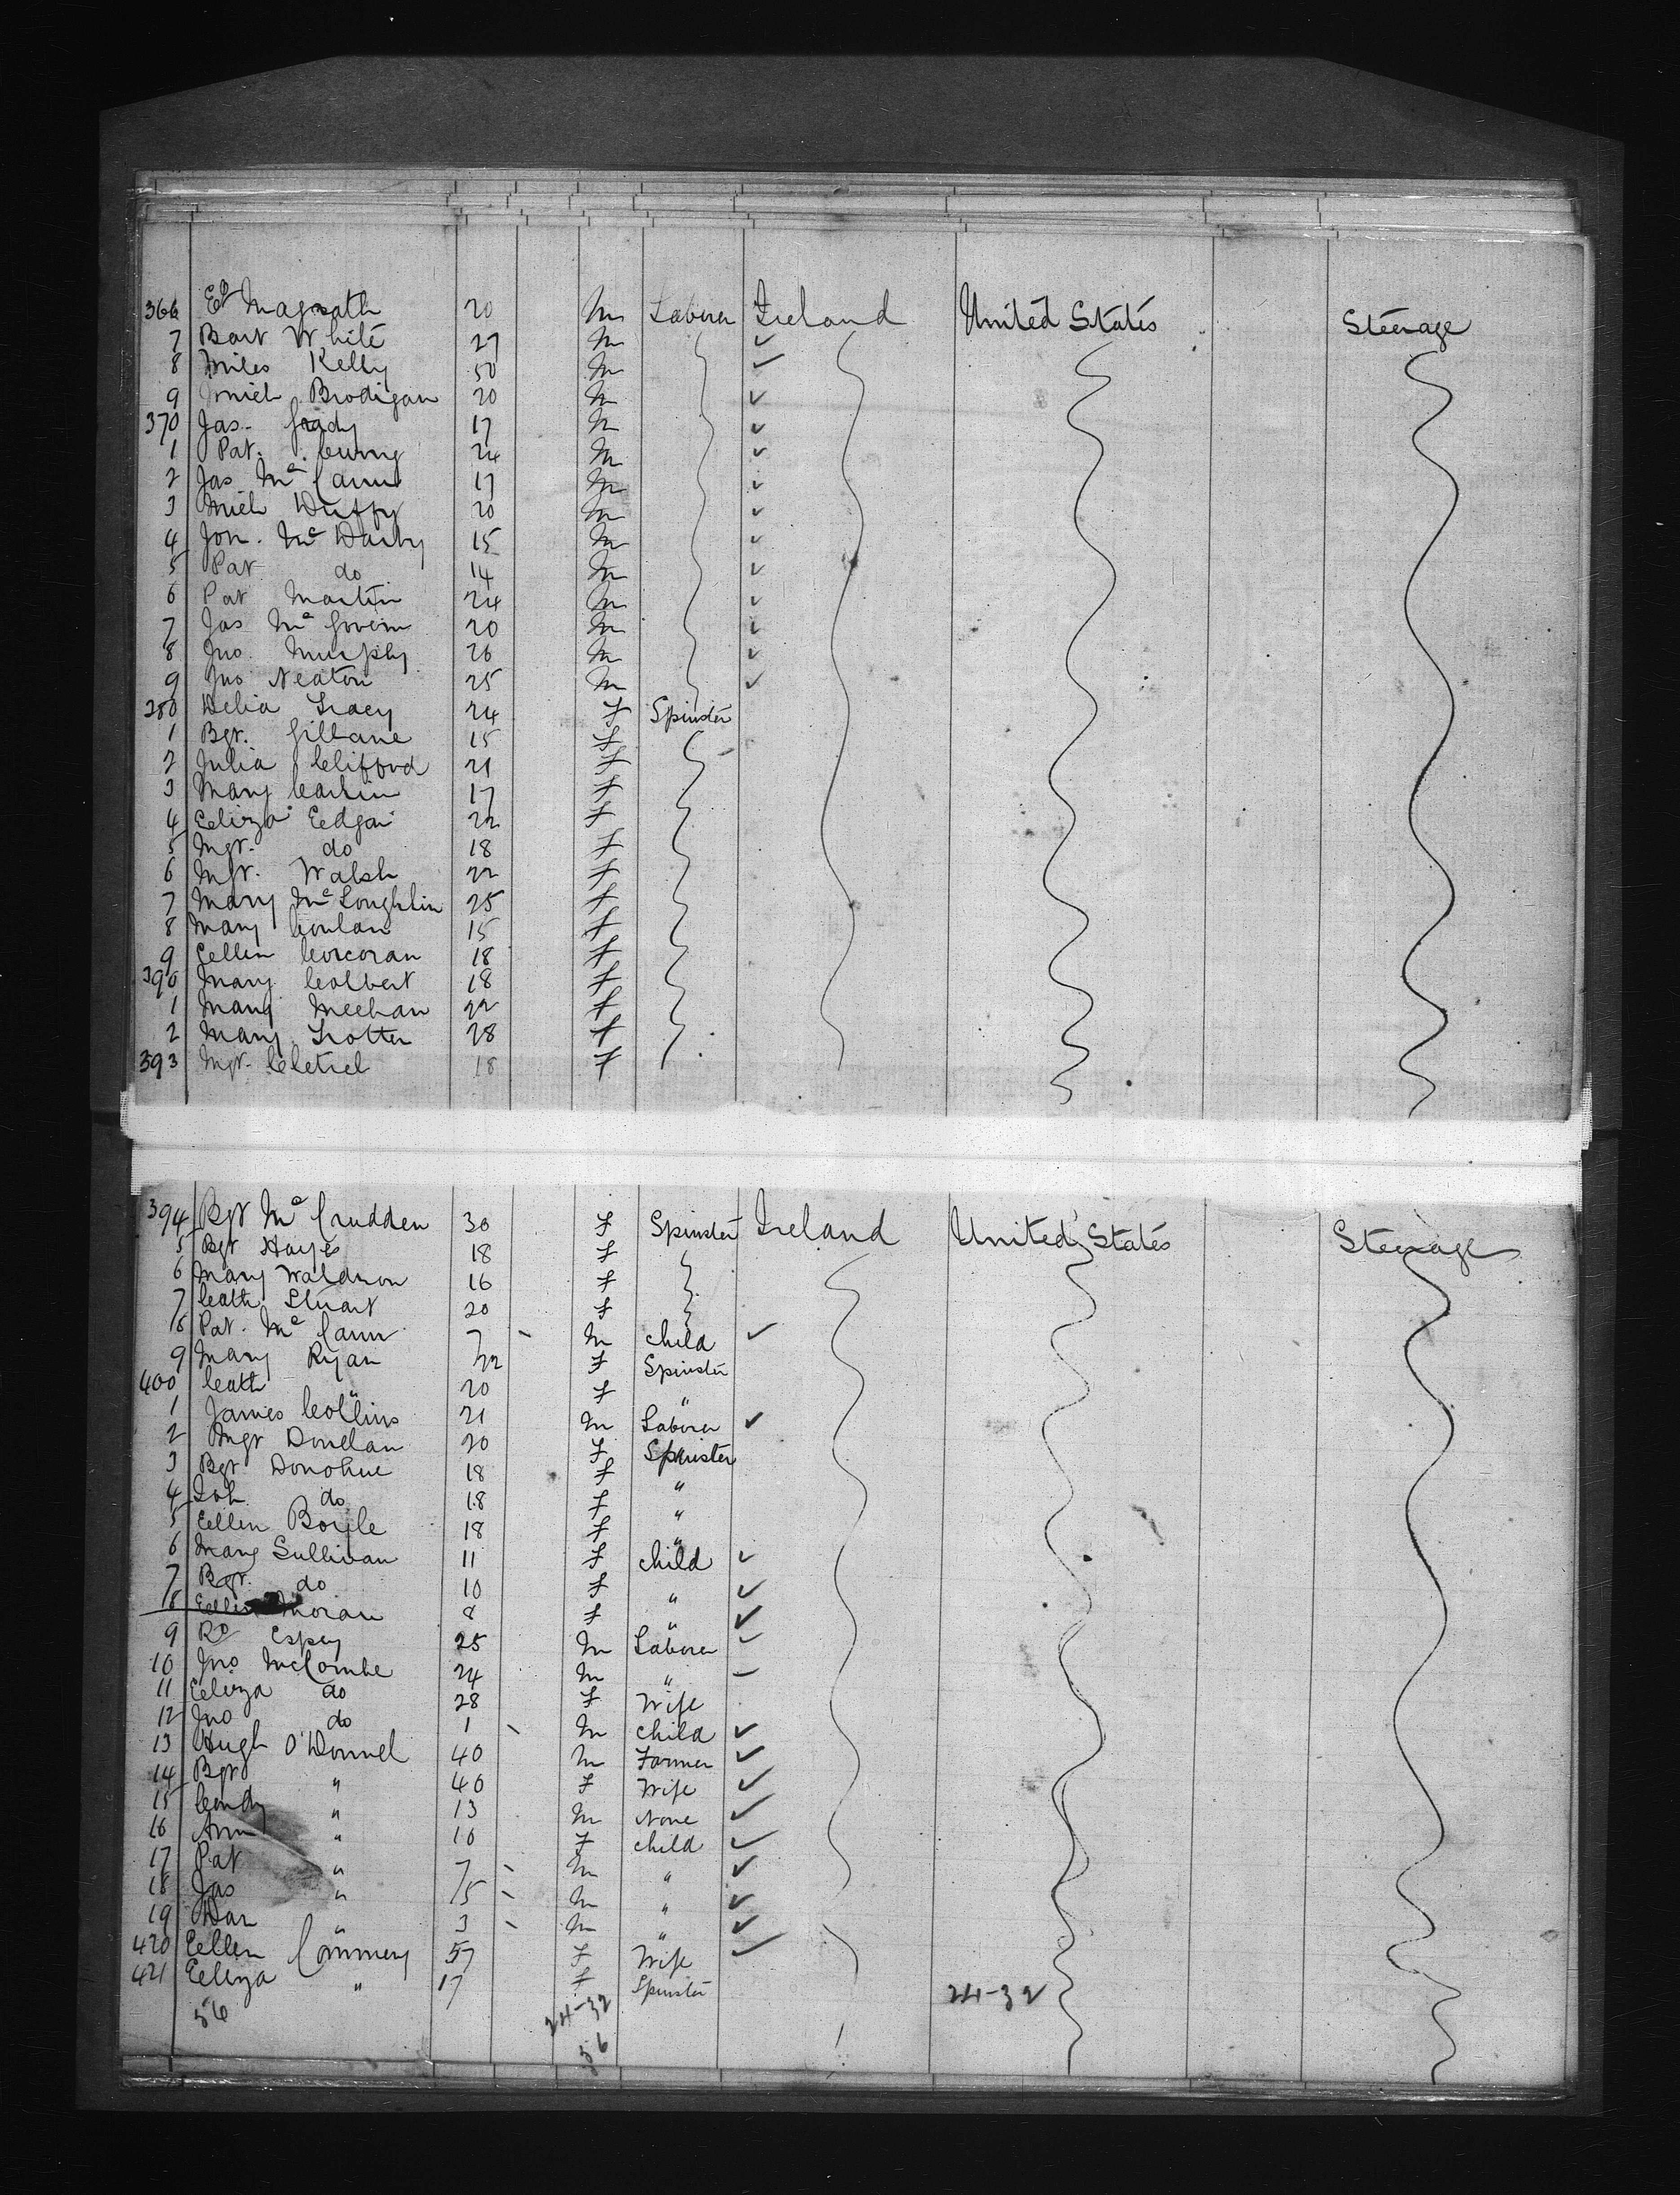 366 Ed Magrath 20 M Laborer Ireland United States Steerage
7 Bart White 27 M ✓
8 Miles Kelly 50 M ✓
9 Mich Brodigan 20 M ✓
370 Jas. Grady 17 M ✓
1 Pat. 24 M ✓
2 Jas Mc Cann 17 M ✓
3 Mich Duffy 20 M ✓
4 Jon. Mc Darby 15 M ✓
5 Pat do 14 M ✓
6 Pat Martin 24 M ✓
7 Jas Mc Govern 20 M ✓
8 Jno. Murphy 26 M ✓
9 Jno Neaton 25 M ✓
380 Delia Tracy 24 F Spinster
1 Bgt. Gillane 15 F
2 Julia Clifford 21 F
3 Mary Carlin 17 F
4 Eliza Edgar 22 F
5 Mgt. do 18 F
6 Mgt. Walsh 22 F
7 Mary Mc Loughlin 25 F
8 Mary Conlan 15 F
9 Ellen Corcoran 18 F
390 Mary Colbert 18 F
1 Mary Meehan 22 F
2 Mary Trotter 28 F
393 Mgt. 18 F
394 Bgt Mc Crudden 30 F Spinster Ireland United States Steerage
5 Bgt Hayes 18 F
6 Mary Waldron 16 F
7 Cath Stuart 20 F
8 Pat. Mc Cann 7 - M child ✓
9 Mary Ryan 22 F Spinster
400 Cath " 20 F "
1 James Collins 21 M Laborer ✓
2 Mgt Donelan 20 F Spinster
3 Bgt Donohue 18 F "
4 Joh. do 18 F "
5 Ellen Boyle 18 F "
6 Mary Sullivan 11 F child ✓
7 Bgt. do 10 F " ✓
8 Ellen Moran 8 F " ✓
9 Ro Espey 25 M Laborer ✓
10 Jno McCombe 24 M "
11 Eliza do 28 F Wife
12 Jno do 1 - M child ✓
13 Hugh O'Donnel 40 M Farmer ✓
14 Bgt " 40 F Wife ✓
15 " 13 M None ✓
16 Ann " 10 F child ✓
17 Pat " 7 - M " ✓
18 Jas " 5 - M " ✓
19 Dan " 3 - M " ✓
420 Ellen Commery 57 F Wife ✓
421 Eliza " 17 F Spinster
56 24-32 24-32
56